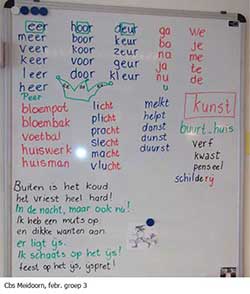 eer hoor deur ga we
meer boor keur je
veer koor zeur na me
keer voor geur ja te
leer door kleur nu de
heer u
Peer
kunst
bloempot licht melkt
bloembak plicht helpt
voetbal pracht danst
huiswerk slecht dunst
huisman macht duurst
vlucht
buurt-huis
verf
kwast
penseel
schilderij
Buiten is het koud
het vriest heel hard!
In de nacht, maar ook nu!
Ik heb een muts op
en dikke wanten aan.
er ligt ijs.
Ik schaats op het ijs!
feest op het ijs, ijspret!
Cbs Meidoorn, febr. groep 3